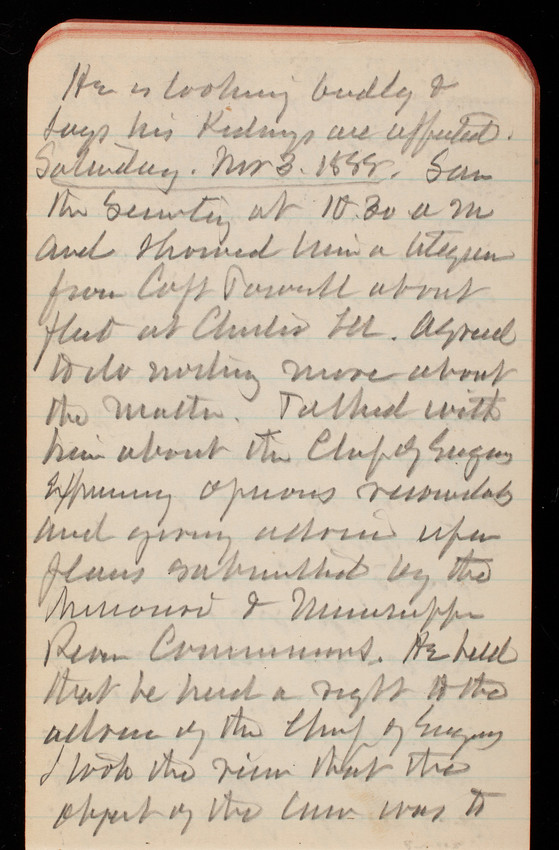 He is looking badly &
says his Kidneys are affected.
Saturday. Nov 3. 1888. Saw
the Secretary at 10.30 a m
and showed him a telegram
from Capt Powell about
fleet at Charles . Agreed
to do nothing more about
the matter. Talked with
him about the Chief of Engrs
expressing opinions
and giving advice upon
plans submitted by the
Missouri & Mississippi
River Commissions. He held
that he had a right to the
advice of the Chief of Engrs
I took the view that the
object of the law was to